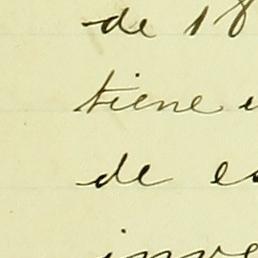 de 18
tiene
de es
inve